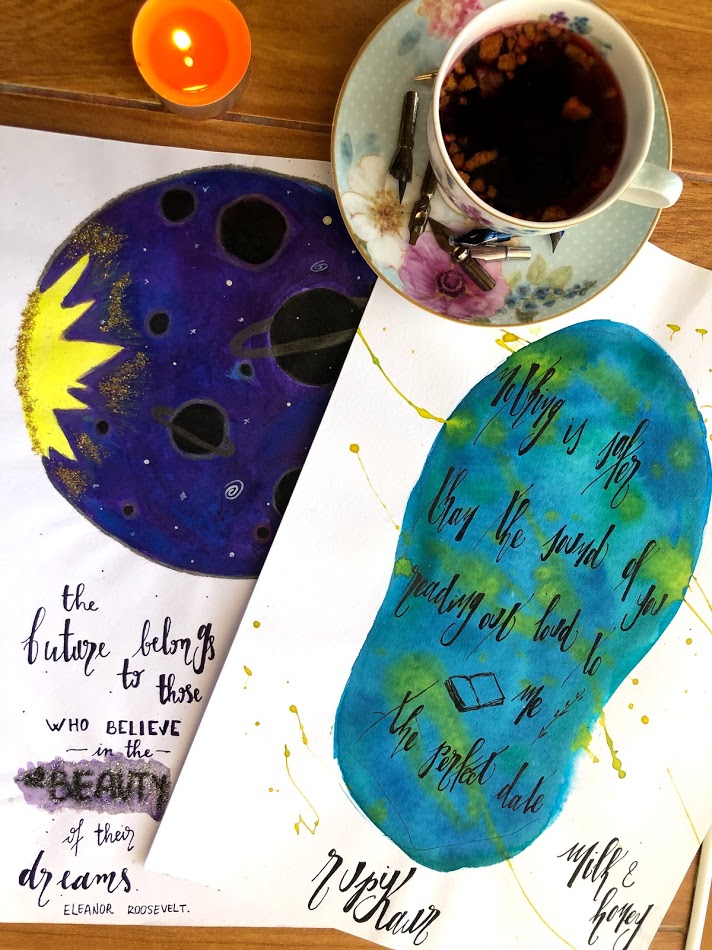 the
future belongs
to those
WHO BELIEVE
— in the —
BEAUTY
of their
dreams
ELEANOR ROOSEVELT.
nothing is safer
than the sound of you
reading out loud to
me
the perfect date
rupi
kaur
milk &
honey